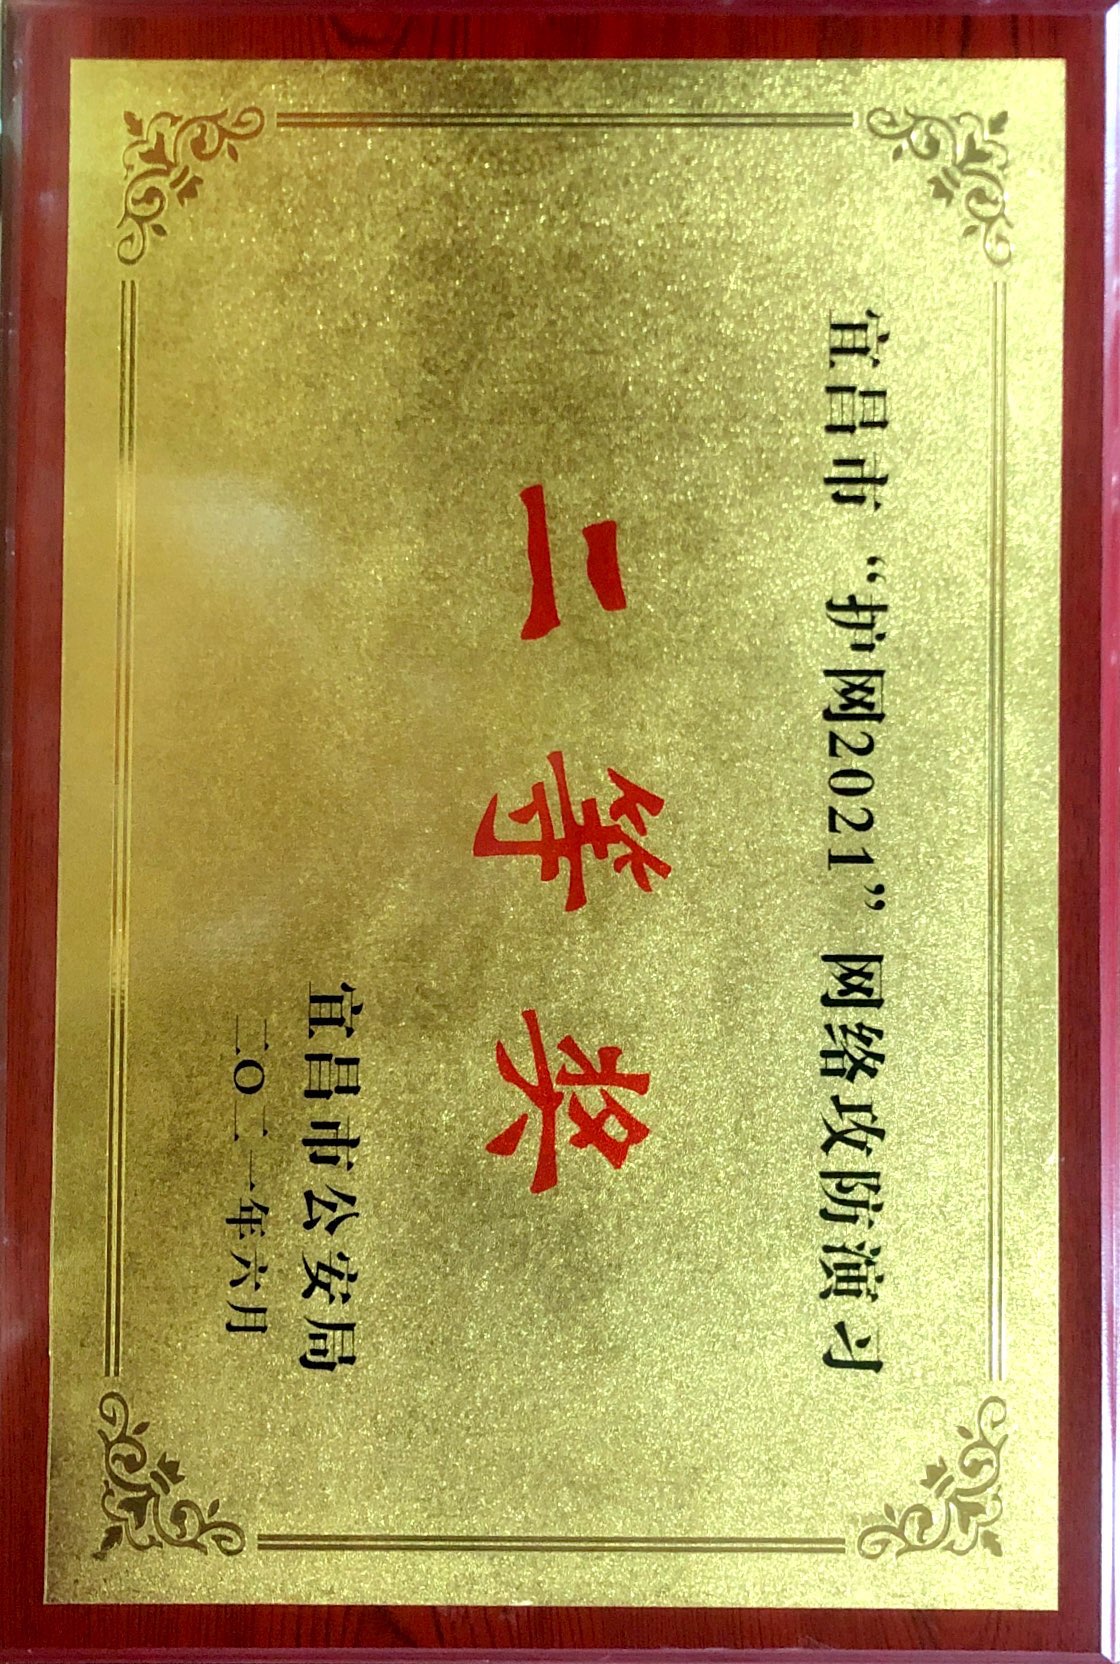 宜昌市“护网2021”网络攻防演习
二等奖
宜昌市公安局
二〇二一年六月